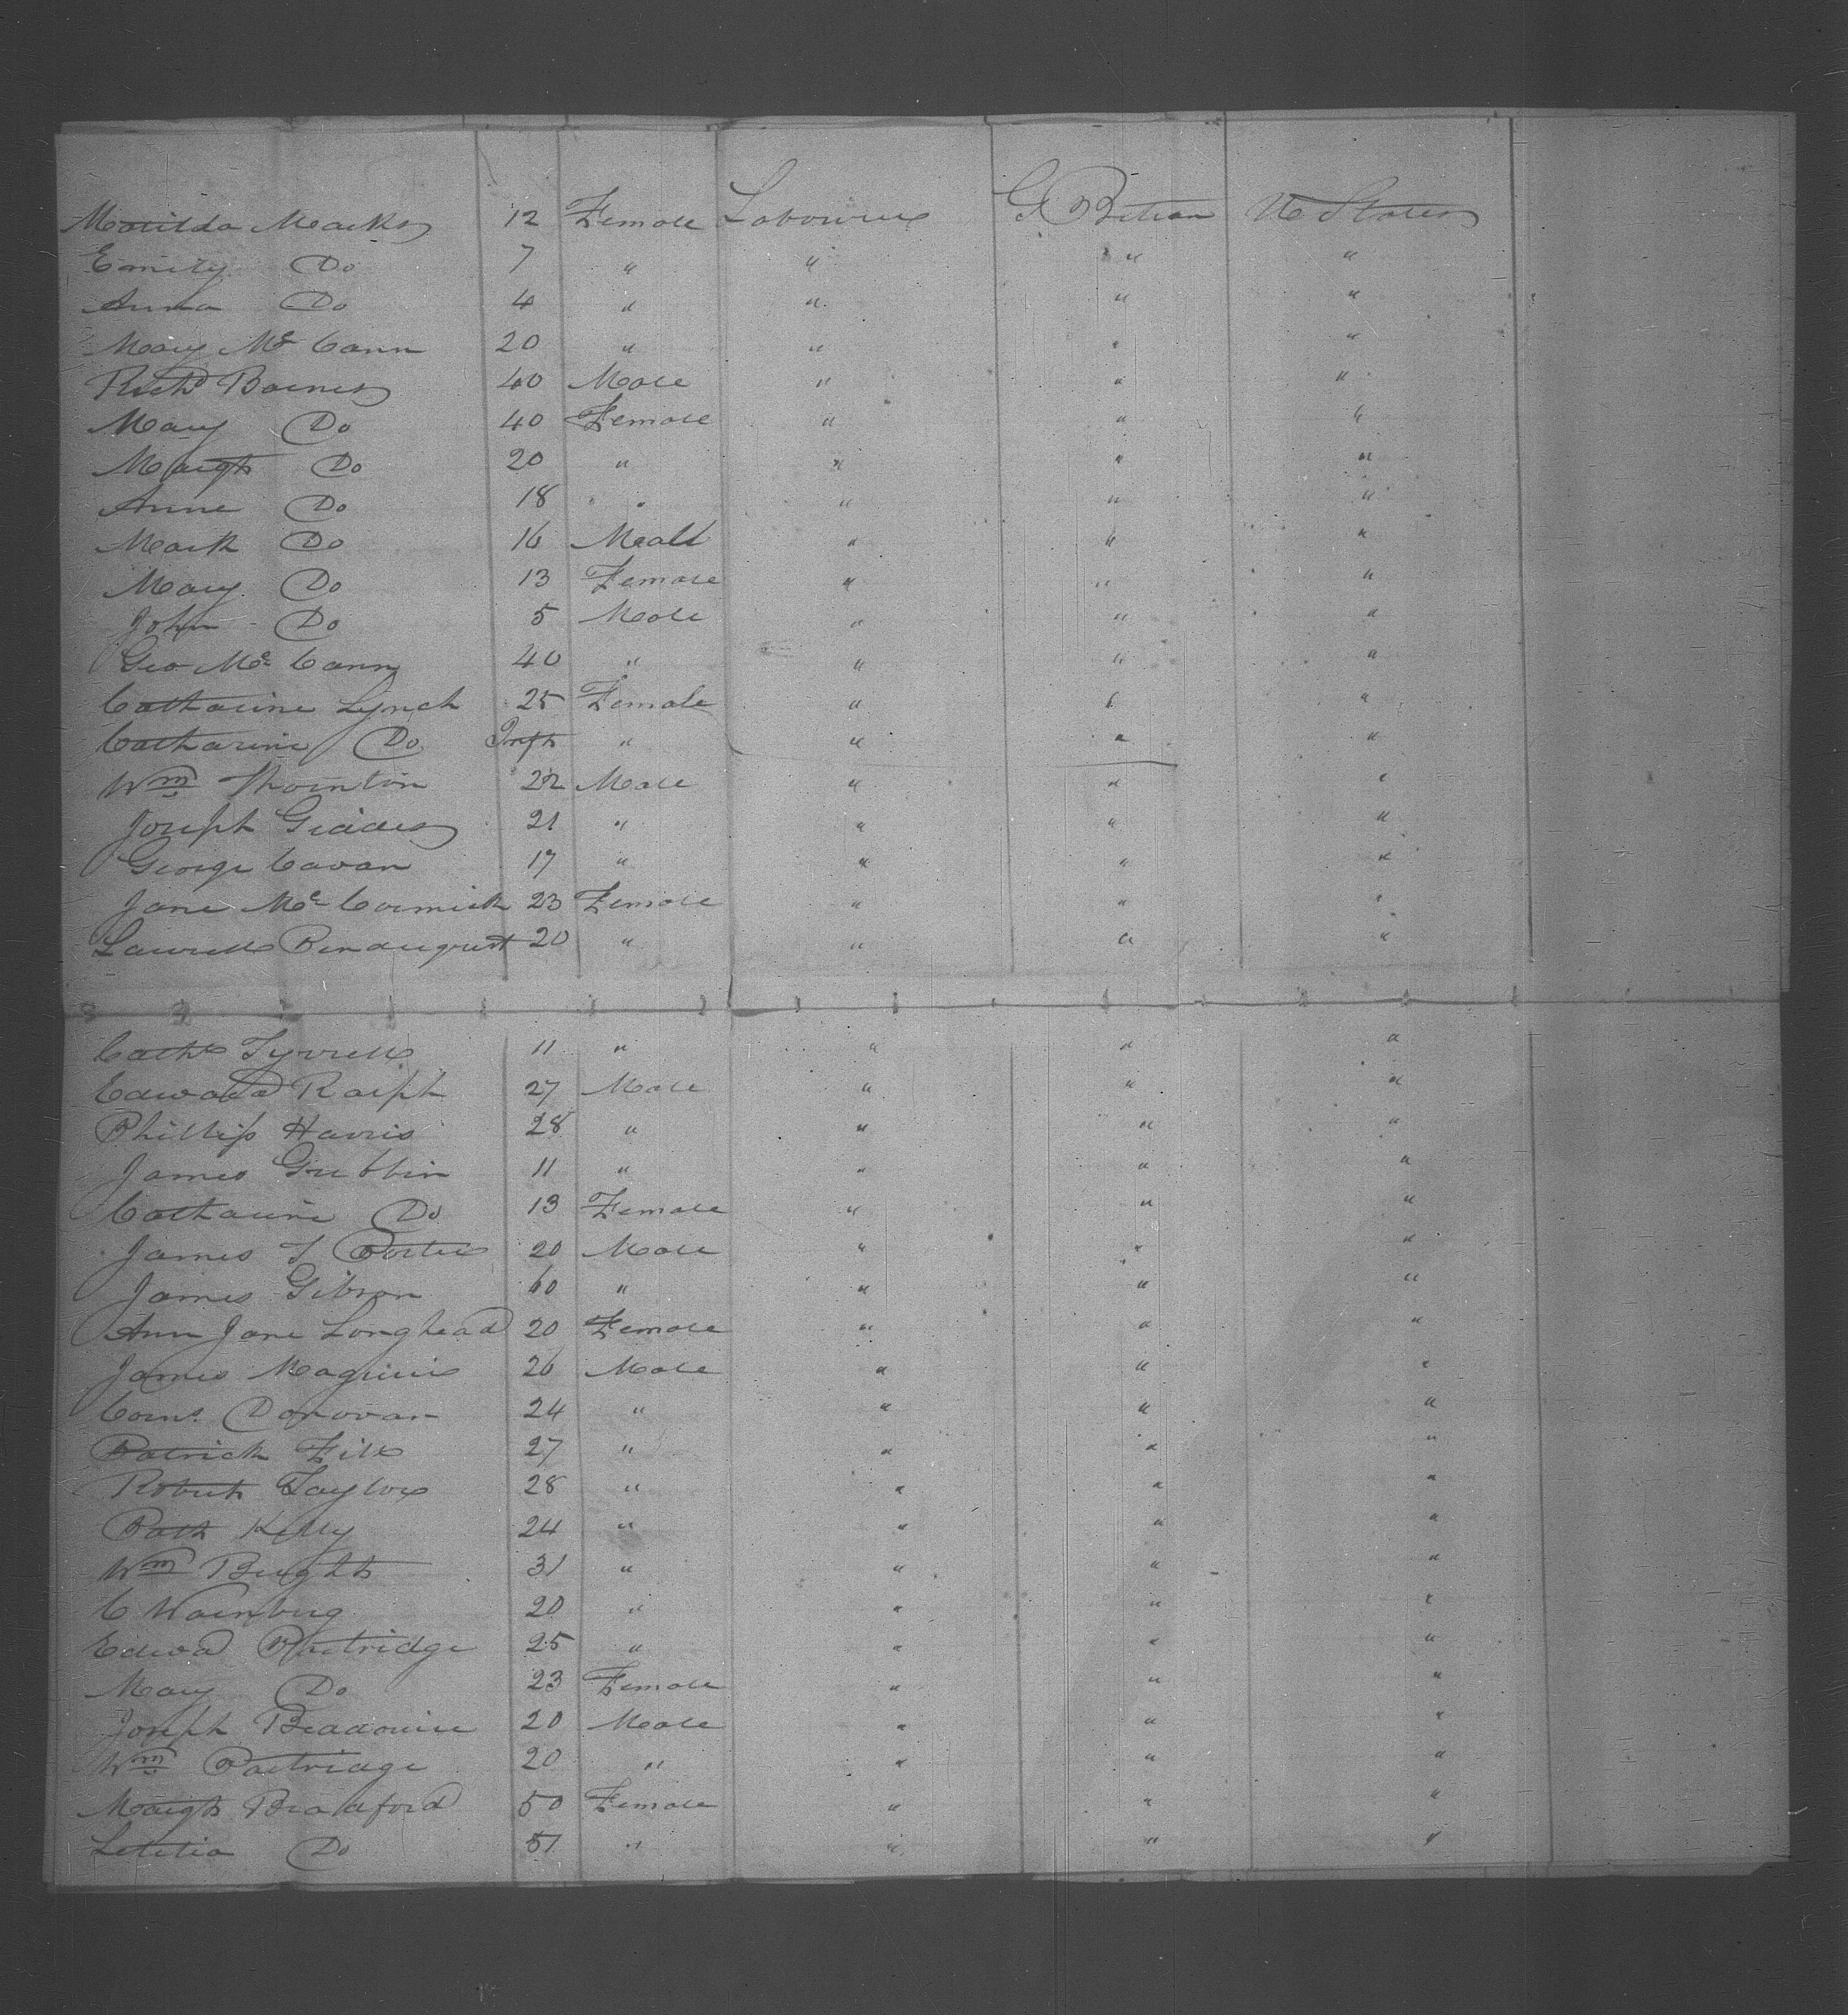 Matilda Marks 12 Female Labourer G Britian U States
Emily Do 7 " " " "
Anna Do 4 " " " "
Mary Mc Cann 20 " " " "
Richd Barnes 40 Male " " "
Mary Do 40 Female " " "
Margt Do 20 " " " "
Anne Do 18 " " " "
Mark Do 16 Male " " "
Mary Do 13 Female " " "
John Do 5 Male " " "
Geo Mc Cann 40 " " " "
Catharine Lynch 25 Female " " "
Catharine Do Inft " " " "
Wm Thornton 22 Male " " "
Joseph 21 " " " "
George Cavan 17 " " " "
Jane Mc Cormick 23 Female " " "
20 " " " "
Cathe Tyrrell 11 " " " "
Edward Ralph 27 Male " " "
Phillip Harris 28 " " " "
James Gribbin 11 " " " "
Catharine Do 13 Female " " "
James T Porter 20 Male " " "
James Gibson 60 " " " "
Ann Jane Longhead 20 Female " " "
James Maguire 26 Male " " "
Corns Donovan 24 " " " "
Patrick 27 " " " "
Robert Taylor 28 " " " "
Patk Kelly 24 " " " "
Wm Bright 31 " " " "
C Warnburg 20 " " " "
Edwd Partridge 25 " " " "
Mary Do 23 Female " " "
Joseph 20 Male " " "
Wm Partridge 20 " " " "
Margt Bradford 50 Female " " "
Letitia Do 51 " " " "